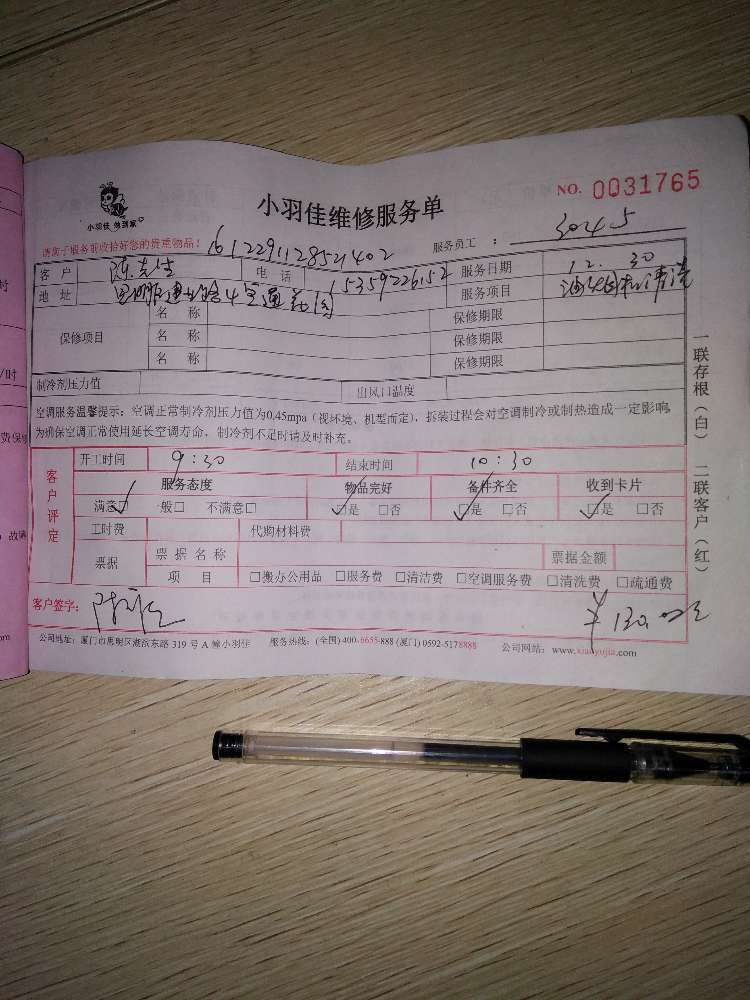 小羽佳 做到家
小羽佳维修服务单
NO. 0031765
请您于服务前收拾好您的贵重物品!
1612291128521402
服务员工 : 3045
客户 陈先生 电话 15359226152 服务日期 12. 30
地址 服务项目 油烟机清洗
保修项目 名称 保修期限
名称 保修期限
名称 保修期限
制冷剂压力值 出风口温度
空调服务温馨提示:空调正常制冷剂压力值为0.45mpa(视环境、机型而定),拆装过程会对空调制冷或制热造成一定影响,
为确保空调正常使用延长空调寿命,制冷剂不足时请及时补充。
客户评定
开工时间 9:30 结束时间 10:30
服务态度 物品完好 备件齐全 收到卡片
满意☑ 一般□ 不满意□ ☑是 □否 ☑是 □否 ☑是 □否
工时费 代购材料费
票据 票据名称 票据金额
项目 □搬办公用品 □服务费 □清洁费 □空调服务费 □清洗费 □疏通费
客户签字: ¥130.00元
公司地址:厦门市思明区湖滨东路 319 号 A 幢小羽佳 服务热线:(全国) 400-6655-888 (厦门) 0592-5178888 公司网站:www.xiaoyujia.com
一联存根(白) 二联客户(红)